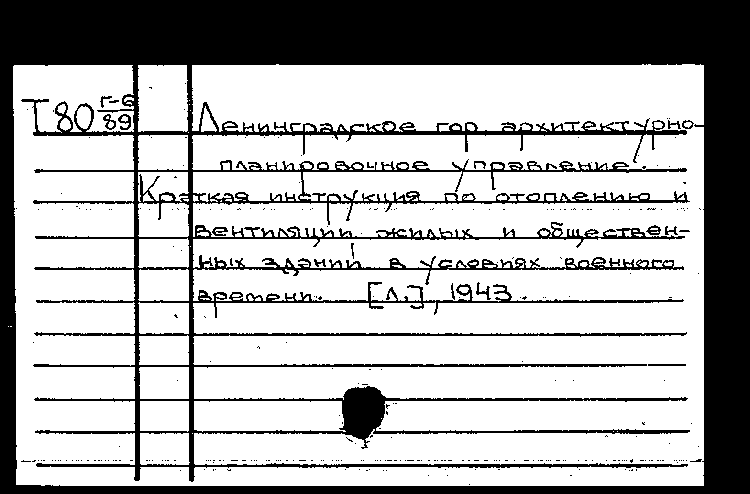 Т80 Г-6/89
Ленинградское гор. архитектурно-
планировочное управление.
Краткая инструкция по отоплению и
вентиляции жилых и обществен-
ных зданий в условиях военного
времени. [Л.], 1943.